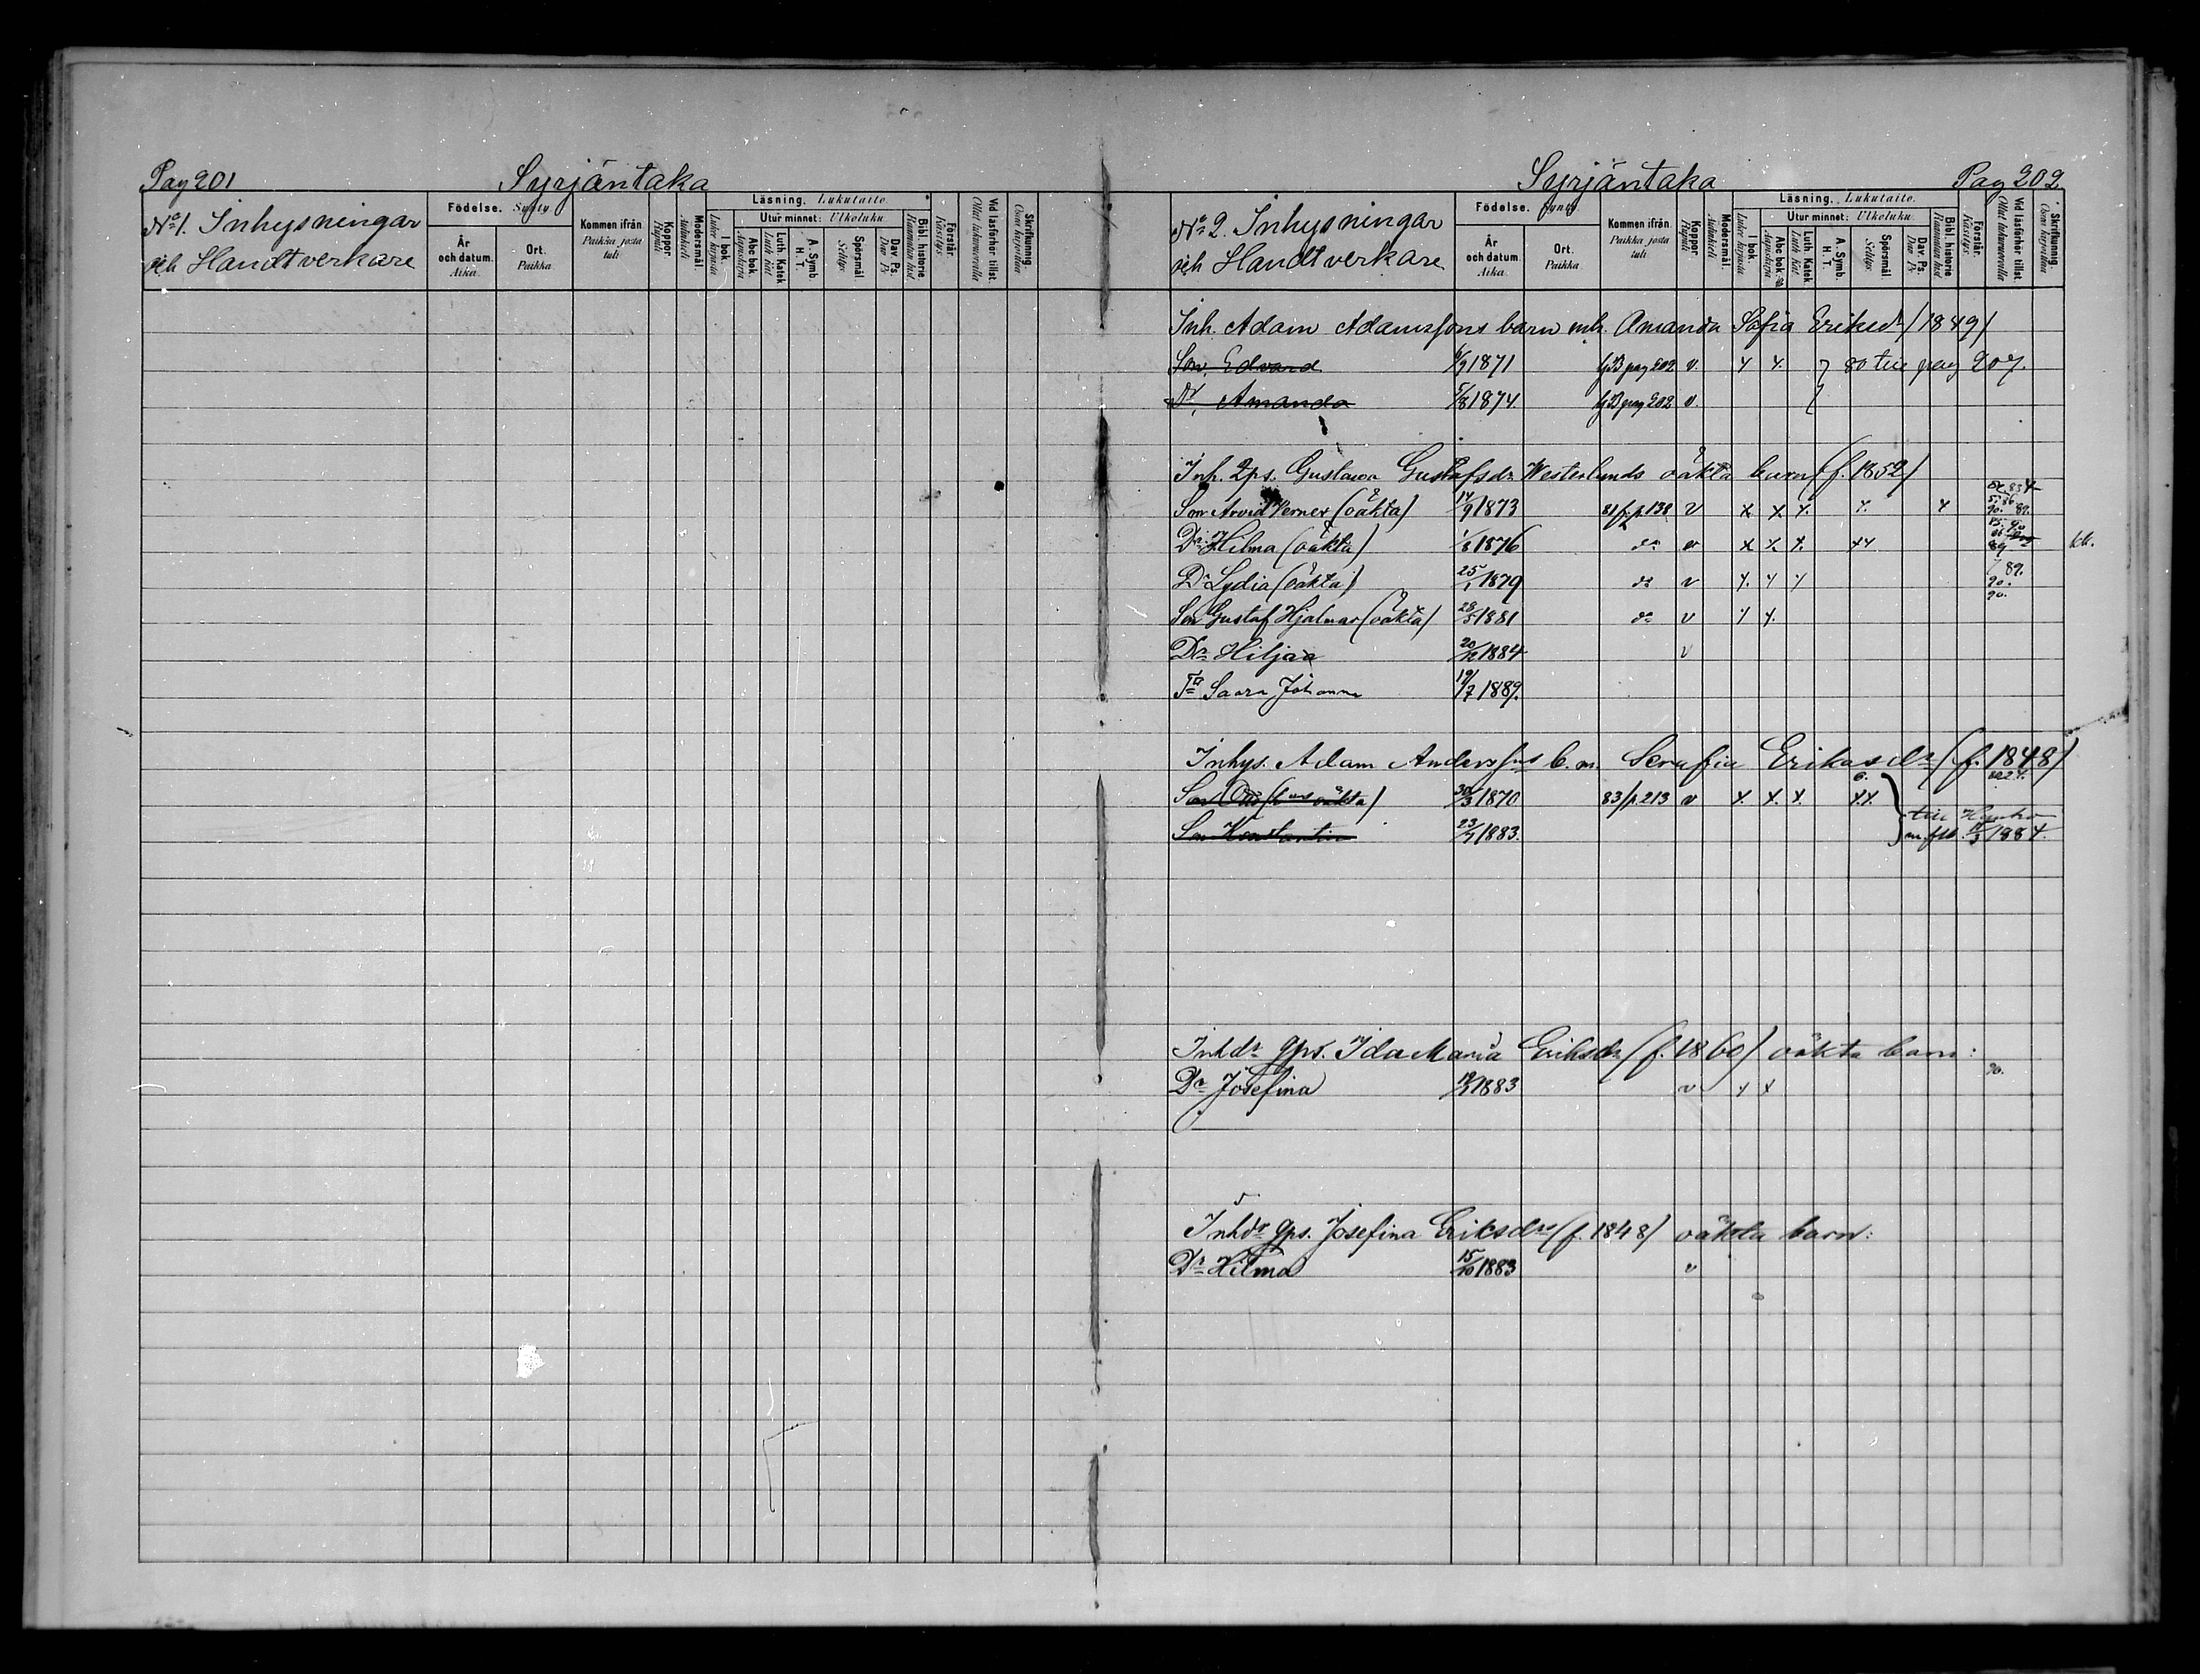 Pag 201 Syrjäntaka
No 1. Inhysningar
och Handtverkare
Födelse. Synty
År och datum. Aika.
Ort. Paikka
Kommen ifrån Paikka josta tuli
Koppor Rupuli
Modersmål. Äidinkieli
Läsning. Lukutaito.
I bok. Lukee kirjasta
Utur minnet: Ulkoluku.
Abc bok. Aapiskirja
Luth. Katek Luth. Kat.
A. Symb. H. T.
Spörsmål Selitys.
Dav. Ps. Dav. Ps.
Bibl. historie Raamatun hist.
Förstår. Käsitys.
Vid läsförhör tillst. Ollut lukuvuorolla
Skrifkunnig. Osaa kirjoittaa
Syrjäntaka Pag 202.
No 2. Inhysningar
och Handtverkare
Födelse. Synty
År och datum. Aika.
Ort. Paikka
Kommen ifrån Paikka josta tuli.
Koppor Rupuli
Modersmål. Äidinkieli
Läsning. Lukutaito.
I bok. Lukee kirjasta
Utur minnet: Ulkoluku
Abc bok. Aapiskirja
Luth. Katek Luth. Kat.
A. Symb. H. T.
Spörsmål Selitys.
Dav. Ps. Dav. Ps.
Bibl. historie Raamatun hist.
Förstår. Käsitys.
Vid läsförhör tillst. Ollut lukuvuorolla
Skrifkunnig. Osaa kirjoittaa
Inh. Adam Adamssons barn m. Amanda Sofia Eriksdr (1849)
Son. Edvard /9 1871 pag 202 v. x x. 80 till pag 207.
Dr. Amanda 5/8 1874. pag 202 v.
Inh. Qps. Gustava Gustafsdr Westerlunds oäkta barn (f. 1852)
Son Arvid Verner (oäkta) 14/9 1873 81 p. 138 v x x x. x. x
Dr Hilma (oäkta) 1/8 1876 do v x x. x. xx 89 kk.
Dr Lydia (oäkta) 25/1 1879 do v x. x x 89. 90.
Son Gustaf Hjalmar (oäkta) 23/5 1881 do v x x. 90.
Dr Hiljaa 20/12 1884 v
Tr Saara Johanna 19/7 1889.
Inhys. Adam Anderssons b. m. Serafia Eriksdr (f. 1848)
Son Otto (oäkta) 30/3 1870 83/p. 213 v x. x. x xx
till
Son Konstantin 23/7 1883. 1884.
Inhdr Qps. Ida Maria Eriksdr (f. 1860) oäkta barn:
Dr Josefina 1883 v x x 90.
Inhdr Qps. Josefina Eriksdrs (f. 1848) oäkta barn:
Dr Hilma 15/10 1883 v